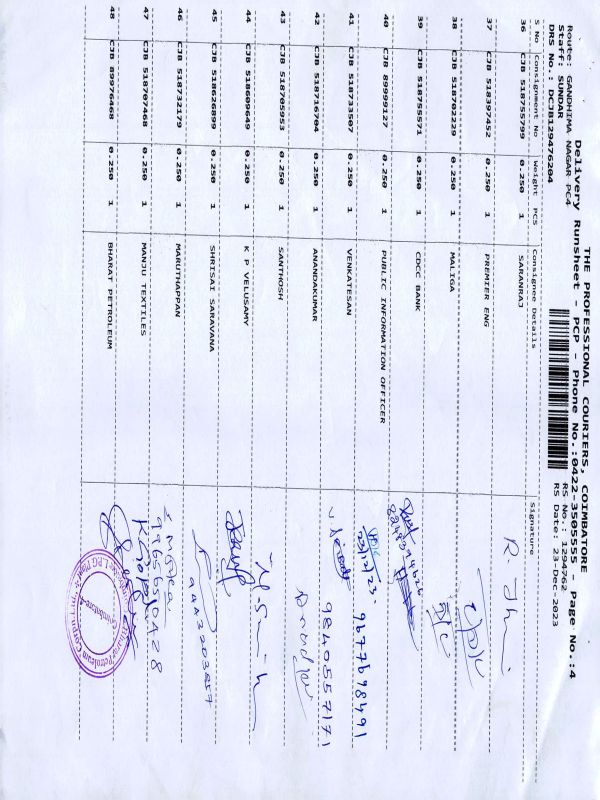 THE PROFESSIONAL COURIERS, COIMBATORE
Delivery Runsheet - PCP - Phone No.:0422-3505555 - Page No.:4
Route: GANDHIMA NAGAR PC4
RS No.: 1294762
Staff: SUNDAR
RS Date: 23-Dec-2023
DRS No.: DCJB129476204
S.No Consignment No Weight PCS Consignee Details Signature
36 CJB 518755799 0.250 1 SARANRAJ
37 CJB 518397452 0.250 1 PREMIER ENG
38 CJB 518702229 0.250 1 MALIGA
39 CJB 518755571 0.250 1 CDCC BANK
40 CJB 89999127 0.250 1 PUBLIC INFORMATION OFFICER 23/12/23 9677698491
41 CJB 518733507 0.250 1 VENKATESAN 9840557171
42 CJB 518716704 0.250 1 ANANDAKUMAR
43 CJB 518705953 0.250 1 SANTHOSH
44 CJB 518609649 0.250 1 K P VELUSAMY
45 CJB 518626899 0.250 1 SHRISAI SARAVANA
46 CJB 518732179 0.250 1 MARUTHAPPAN
47 CJB 518707468 0.250 1 MANJU TEXTILES
48 CJB 89976468 0.250 1 BHARAT PETROLEUM